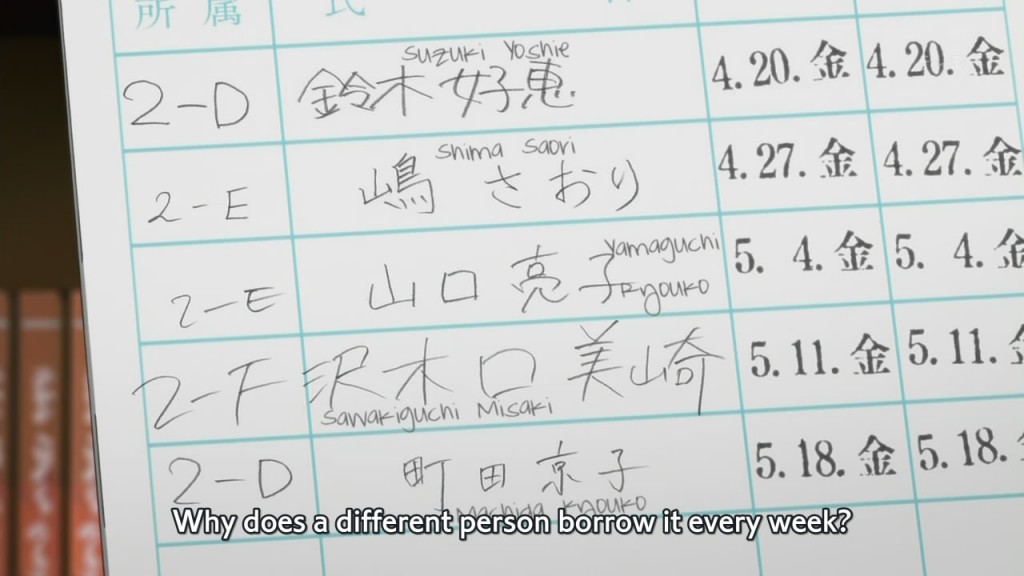 所属 氏
Suzuki Yoshie
2-D 鈴木好恵 4.20.金 4.20.金
Shima Saori
2-E 嶋さおり 4.27.金 4.27.金
Yamaguchi
2-E 山口亮子 5. 4.金 5. 4.金
Kyouko
2-F 沢木口美崎 5.11.金 5.11.金
Sawakiguchi Misaki
2-D 町田京子 5.18.金 5.18.
Machida Kyouko
Why does a different person borrow it every week?